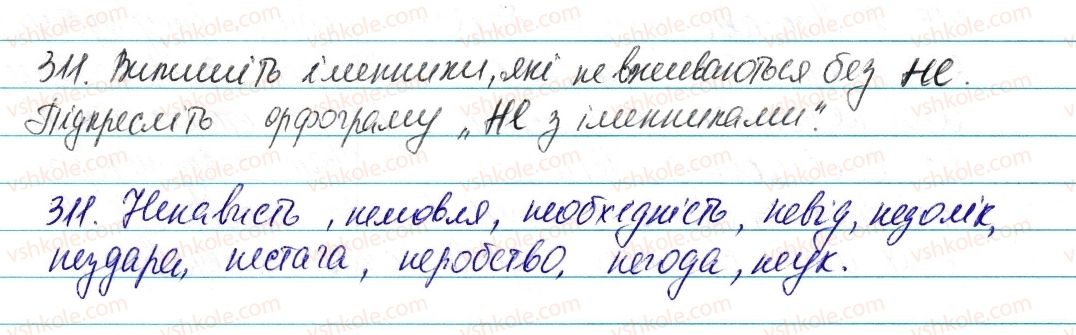 311. Випишіть іменники, які не вживаються без НЕ.
Підкресліть орфограму „НЕ з іменниками".
311. Ненависть, немовля, необхідність, невід, незолік,
нездара, нестача, неробство, негода, неук.